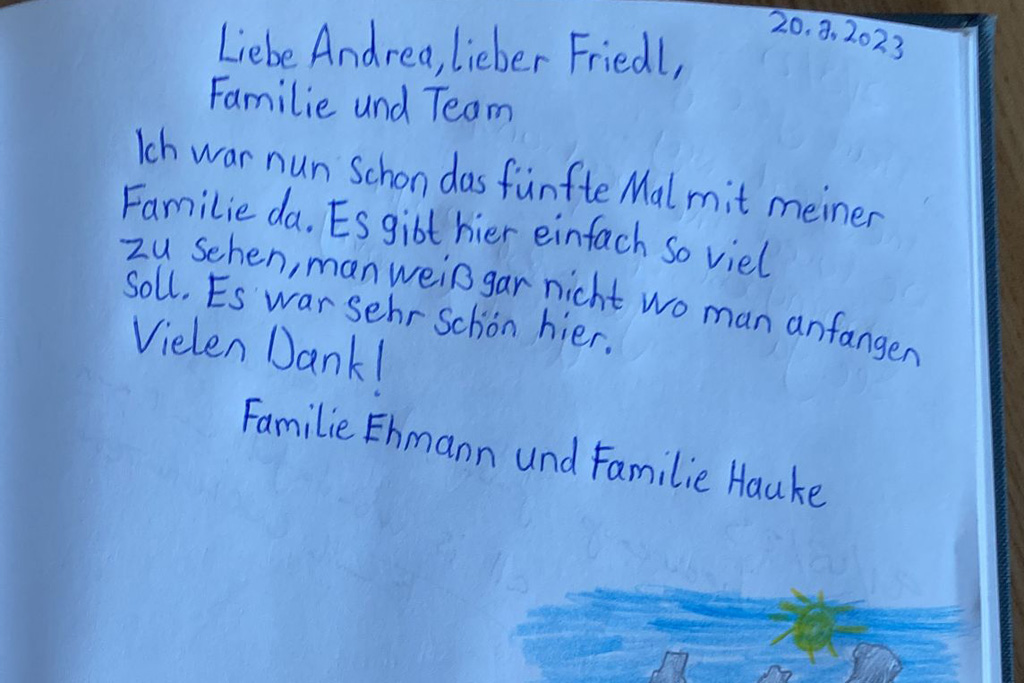 20.8.2023
Liebe Andrea, lieber Friedl,
Familie und Team
Ich war nun schon das fünfte Mal mit meiner
Familie da. Es gibt hier einfach so viel
zu sehen, man weiß gar nicht wo man anfangen
soll. Es war sehr schön hier.
Vielen Dank!
Familie Ehmann und Familie Hauke